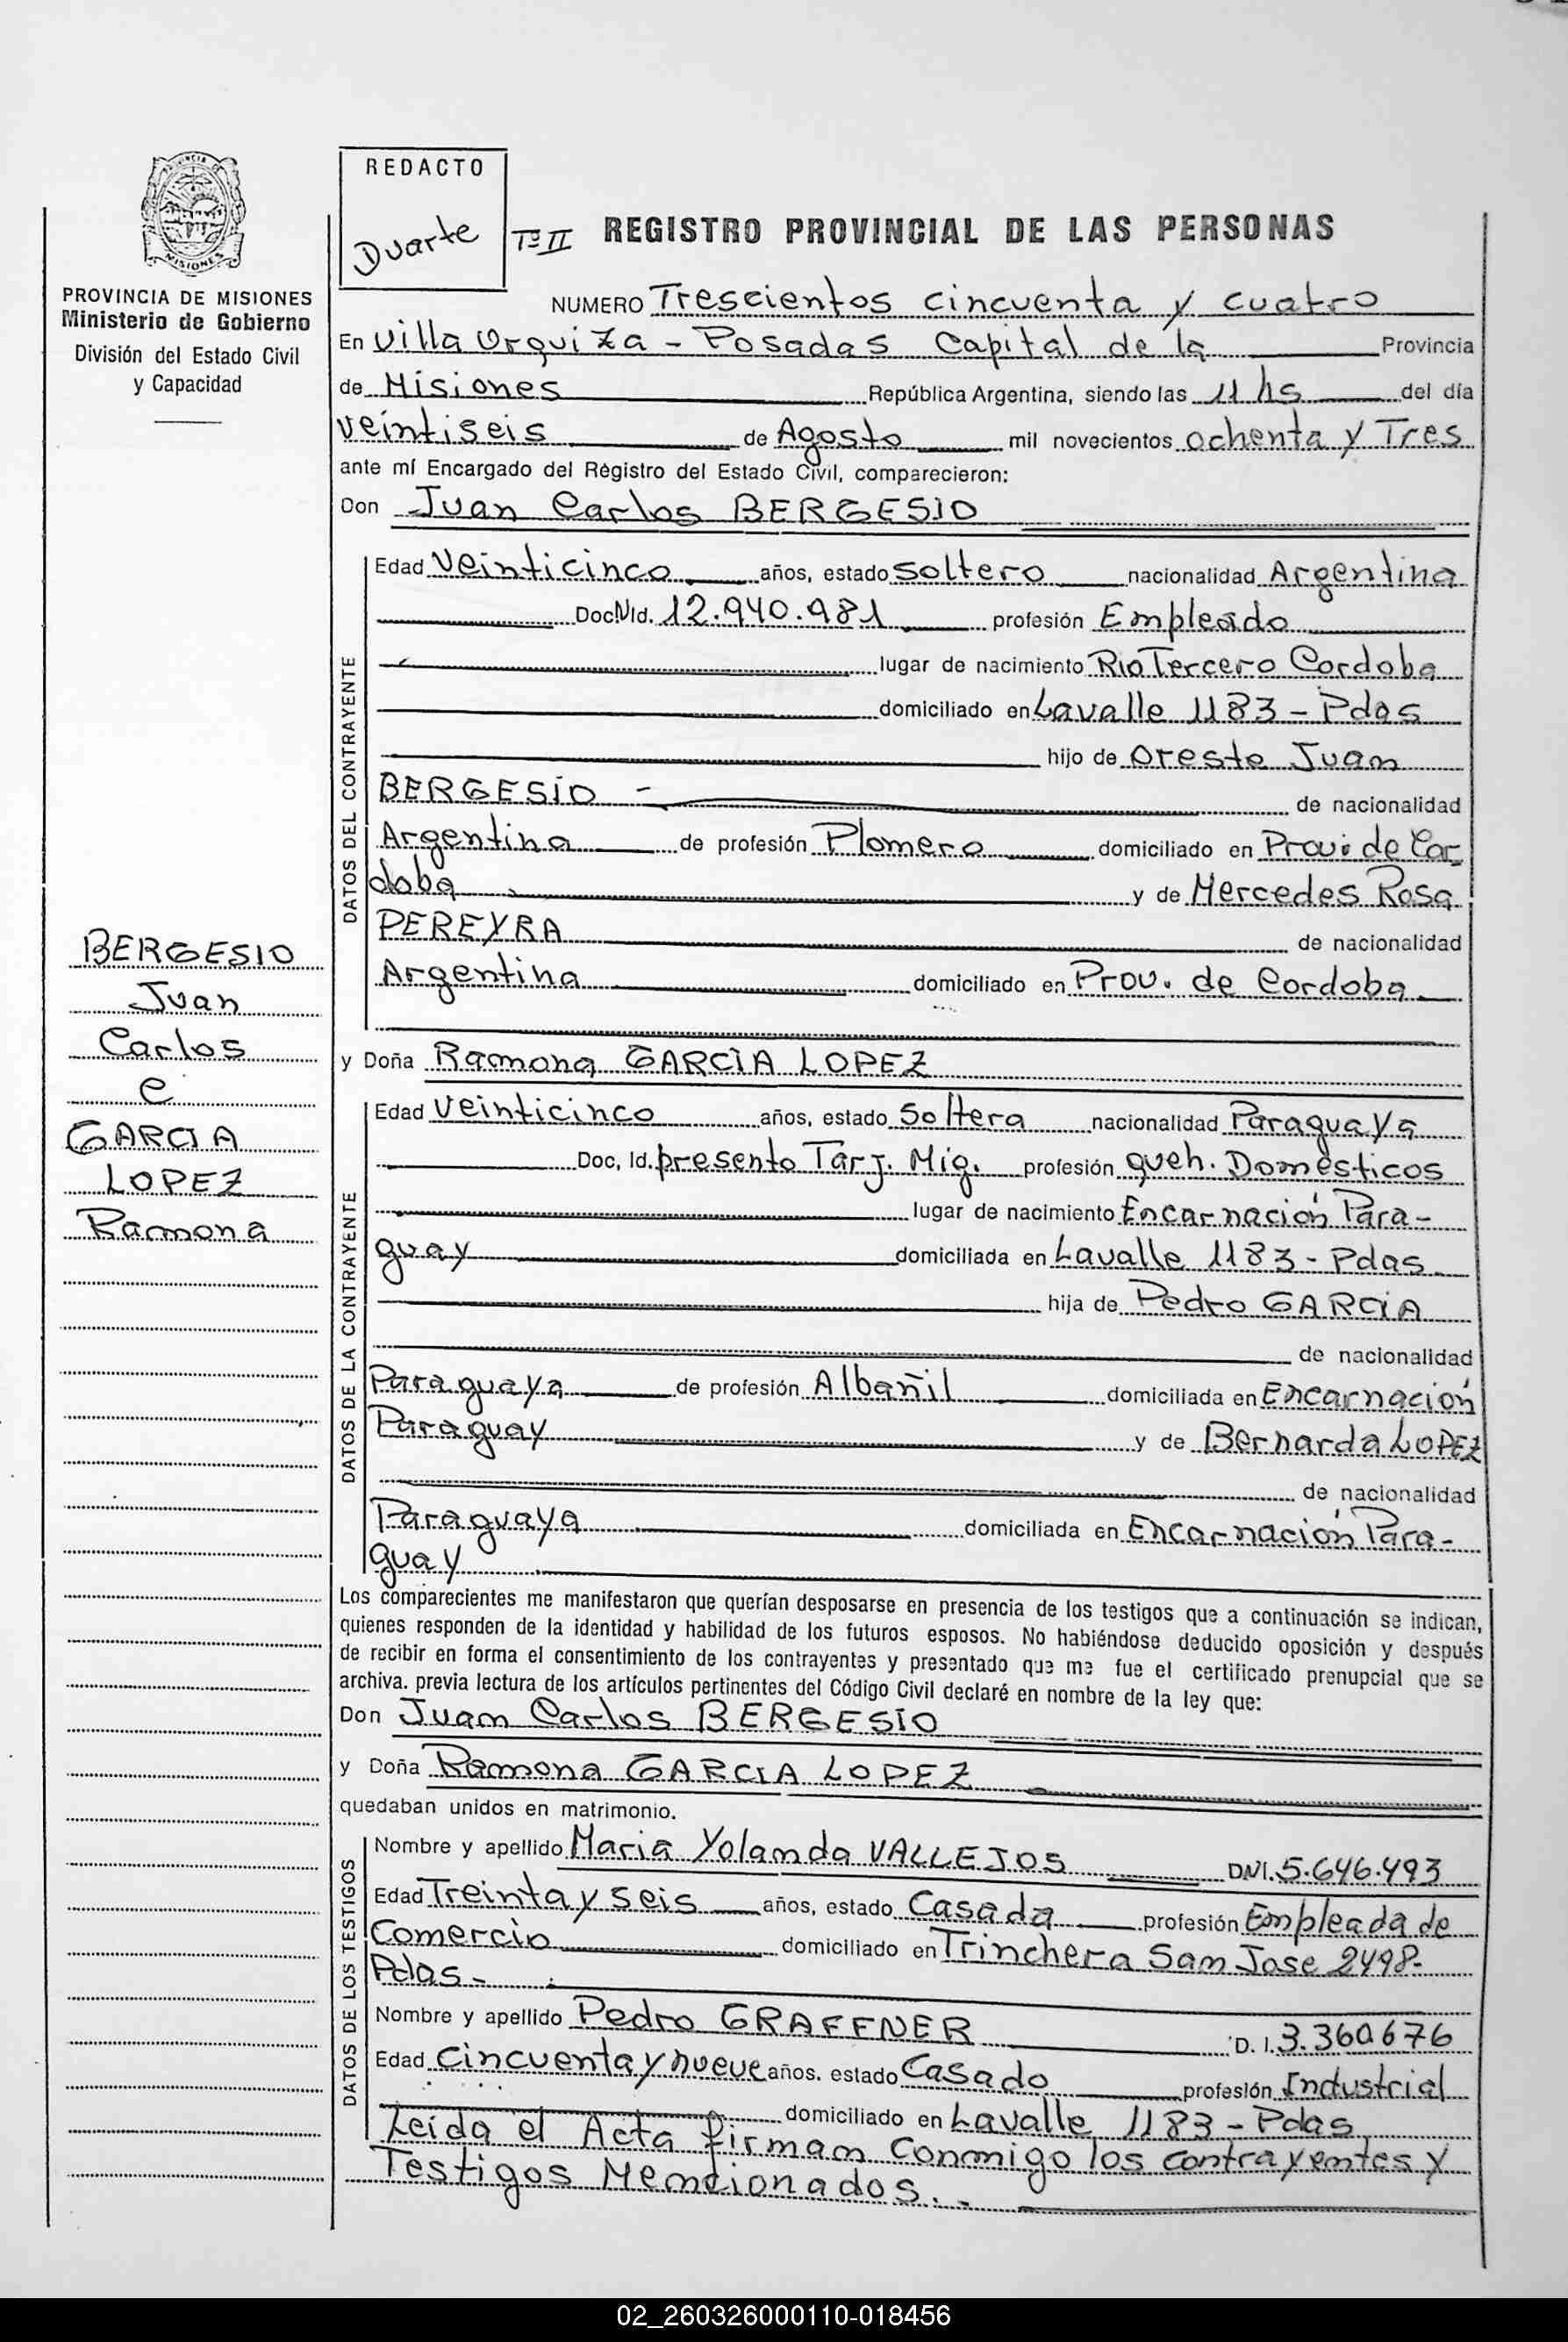 REDACTO
Duarte
Tº II
REGISTRO PROVINCIAL DE LAS PERSONAS
PROVINCIA DE MISIONES
Ministerio de Gobierno
División del Estado Civil
y Capacidad
NUMERO Trescientos cincuenta y cuatro
En Villa Urquiza - Posadas Capital de la Provincia
de Misiones República Argentina, siendo las 11 hs del día
veintiseis de Agosto mil novecientos ochenta y Tres
ante mí Encargado del Régistro del Estado Civil, comparecieron:
Don Juan Carlos BERGESIO
DATOS DEL CONTRAYENTE
Edad Veinticinco años, estado soltero nacionalidad Argentina
Doc.NId. 12.940.981 profesión Empleado
lugar de nacimiento Rio Tercero Cordoba
domiciliado en Lavalle 1183 - Pdas
hijo de Oreste Juan
BERGESIO - de nacionalidad
Argentina de profesión Plomero domiciliado en Prov. de Cor
doba y de Mercedes Rosa
PEREYRA de nacionalidad
Argentina domiciliado en Prov. de Cordoba
BERGESIO
Juan
Carlos
e
GARCIA
LOPEZ
Ramona
y Doña Ramona GARCIA LOPEZ
DATOS DE LA CONTRAYENTE
Edad Veinticinco años, estado Soltera nacionalidad Paraguaya
Doc, Id. presento Tarj. Mig. profesión queh. Domésticos
lugar de nacimiento Encarnación Para-
guay domiciliada en Lavalle 1183 - Pdas
hija de Pedro GARCIA
de nacionalidad
Paraguaya de profesión Albañil domiciliada en Encarnación
Paraguay y de Bernarda LOPEZ
de nacionalidad
Paraguaya domiciliada en Encarnación Para-
guay
Los comparecientes me manifestaron que querían desposarse en presencia de los testigos que a continuación se indican,
quienes responden de la identidad y habilidad de los futuros esposos. No habiéndose deducido oposición y después
de recibir en forma el consentimiento de los contrayentes y presentado que me fue el certificado prenupcial que se
archiva. previa lectura de los artículos pertinentes del Código Civil declaré en nombre de la ley que:
Don Juan Carlos BERGESIO
y Doña Ramona GARCIA LOPEZ
quedaban unidos en matrimonio.
DATOS DE LOS TESTIGOS
Nombre y apellido Maria Yolanda VALLEJOS DNI. 5.646.493
Edad Treinta y seis años, estado Casada profesión Empleada de
Comercio domiciliado en Trinchera San Jose 2498.
Pdas -
Nombre y apellido Pedro GRAFFNER D. I. 3.360676
Edad Cincuenta y nueve años. estado Casado profesión Industrial
domiciliado en Lavalle 1183 - Pdas
Leida el Acta firman conmigo los contrayentes y
Testigos Mencionados. -
02_260326000110-018456